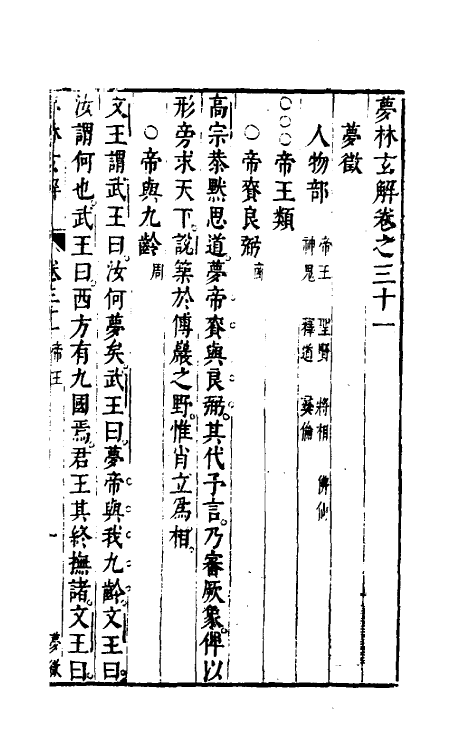 夢林玄解卷之三十一
夢徵
人物部 帝王 聖賢 將相 佛仙
神鬼 釋道 彝倫
○○○帝王類
○帝賚良弼 商
高宗恭默思道。夢帝賚與良弼。其代予言。乃審厥象。俾以
形旁求天下。說築於傅巖之野。惟肖立爲相。
○帝與九齡 周
文王謂武王曰。汝何夢矣。武王曰。夢帝與我九齡。文王曰。
汝謂何也。武王曰。西方有九國焉。君王其終撫諸。文王曰。
林玄解 卷三十一 帝王 一 夢徵